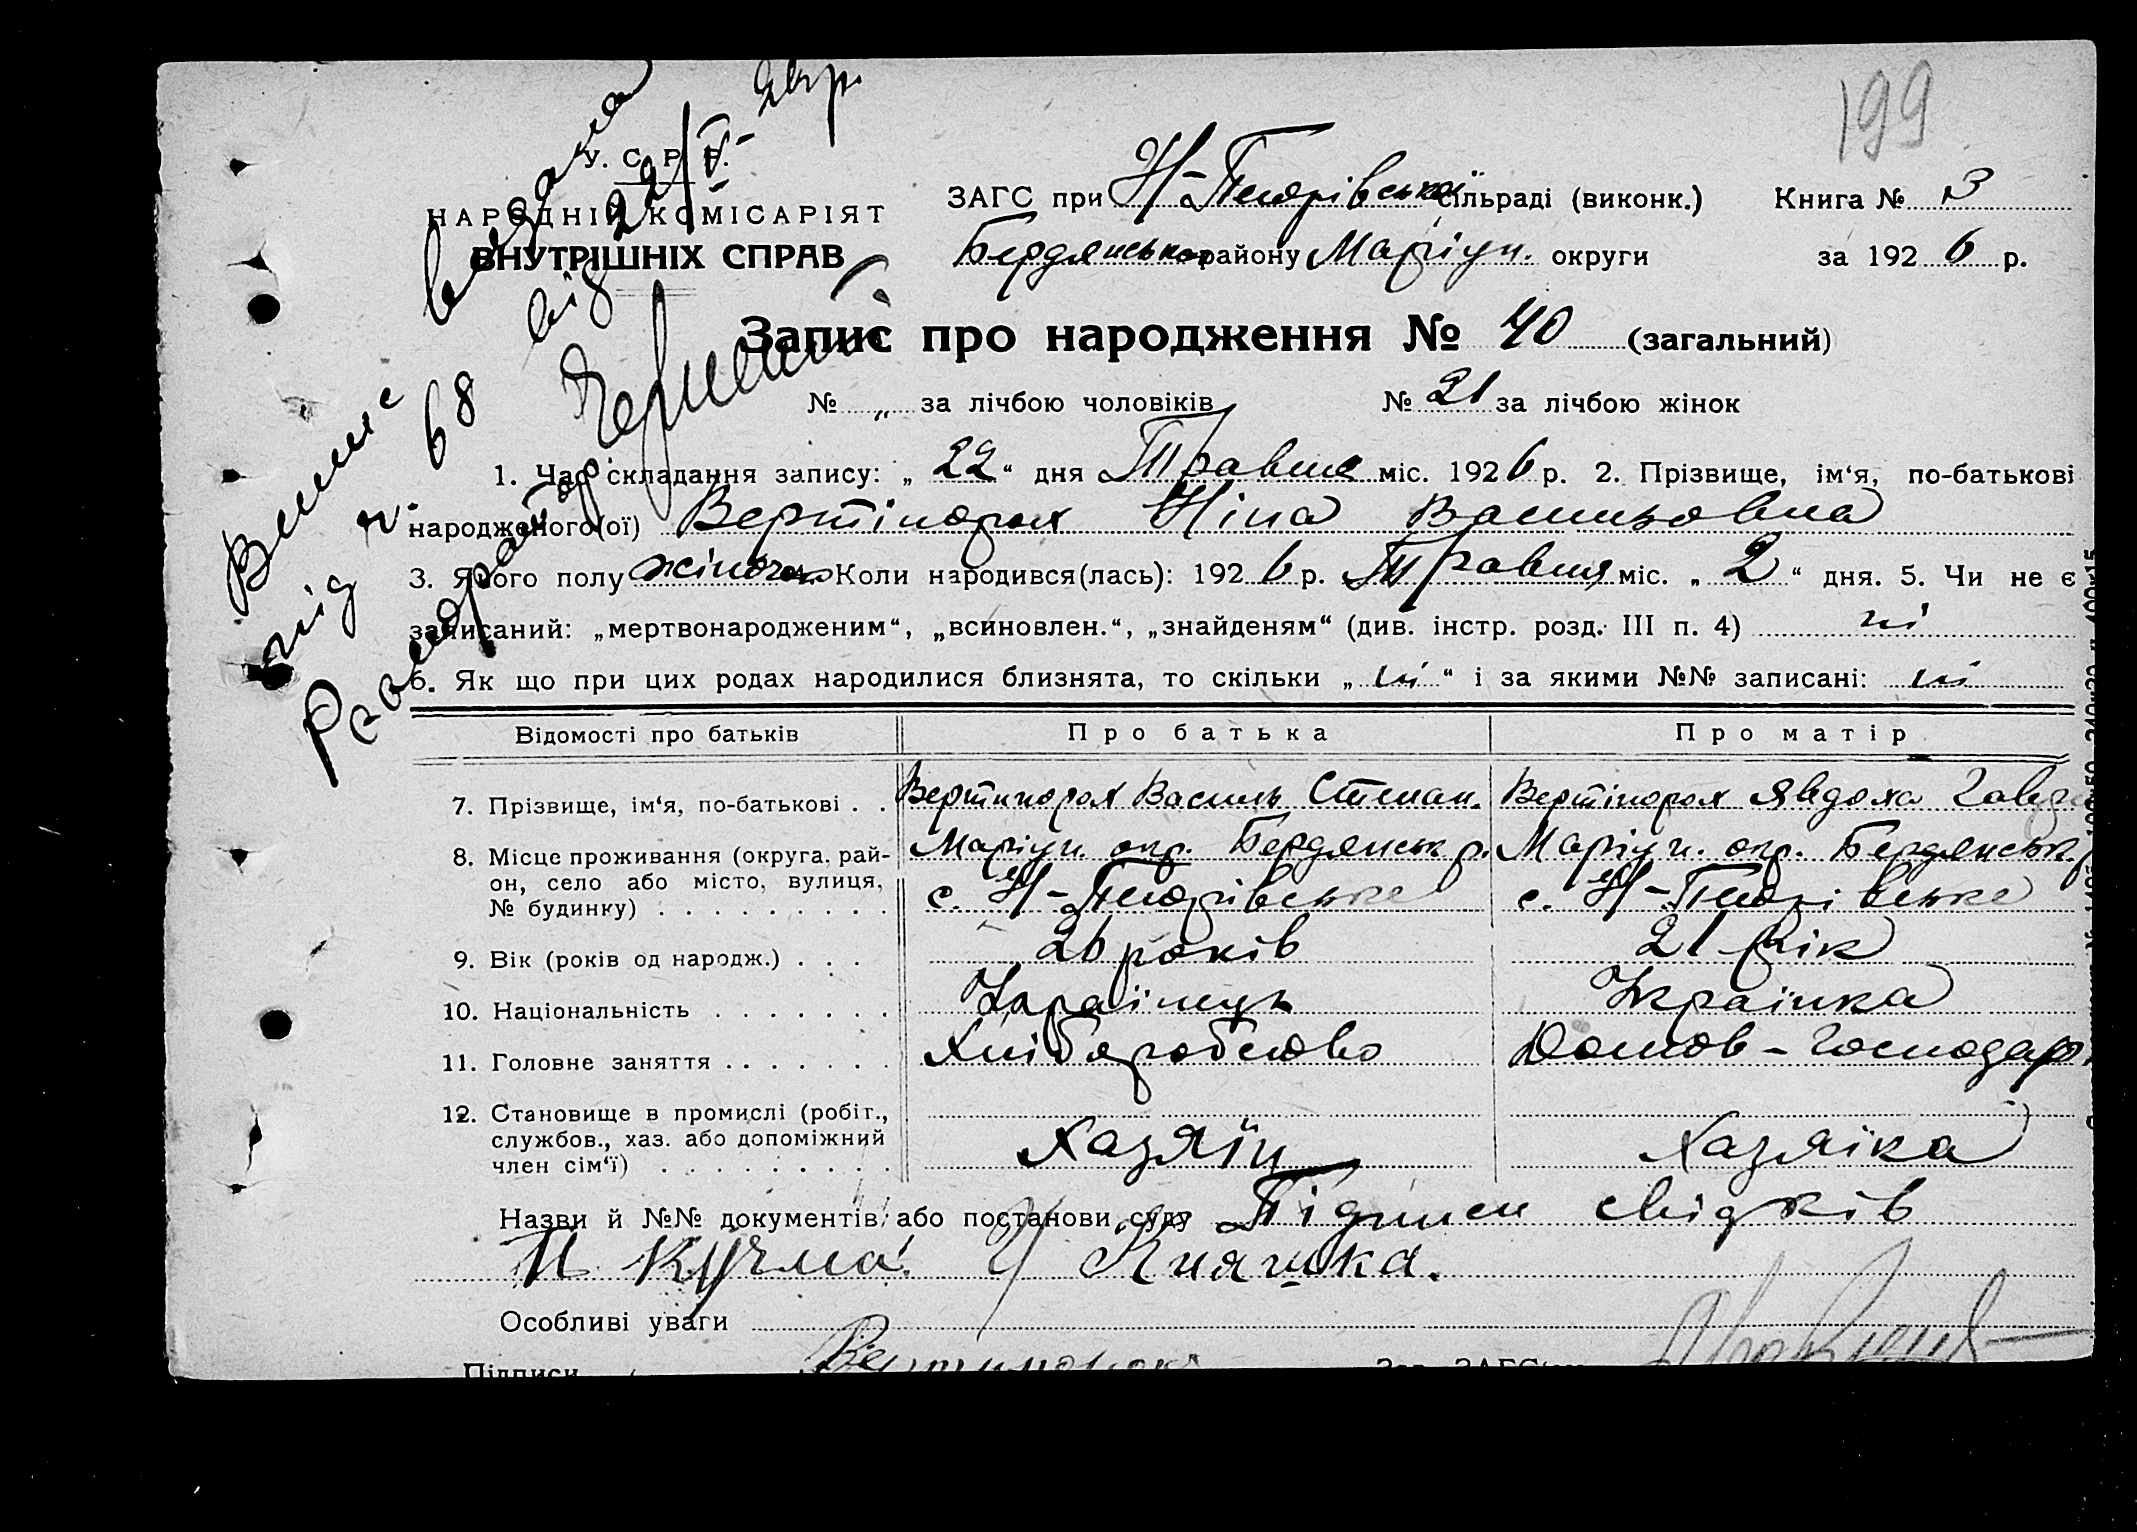 199
У. С. Р. Р.
НАРОДНІЙ КОМІСАРІЯТ
ВНУТРІШНІХ СПРАВ
Випис видана
під ч. 68 від 22/V-26 р.
ЗАГС при Н-Петрівській сільраді (виконк.) Книга № 3
Бердянського району Маріуп. округи за 1926 р.
Запис про народження № 40 (загальний)
№ „ за лічбою чоловіків № 21 за лічбою жінок
1. Час складання запису: „22“ дня Травня міс. 1926 р. 2. Прізвище, ім‘я, по-батькові
народженого(ої) Вертіпорох Ніна Васильовна
3. Якого полу жіночого 4. Коли народився(лась): 1926 р. Травня міс. „2“ дня. 5. Чи не є
записаний: „мертвонародженим“, „всиновлен.“, „знайденям“ (див. інстр. розд. III п. 4) ні
6. Як що при цих родах народилися близнята, то скільки „ні“ і за якими №№ записані: ні
Відомості про батьків Про батька Про матір
7. Прізвище, ім‘я, по-батькові . . Вертипорох Василь Степан. Вертіпорох Явдоха
8. Місце проживання (округа, рай- Маріуп. окр. Бердянськ р. Маріуп. окр. Бердянськ. р
он, село або місто, вулиця, с. Н-Петрівське с. Н-Петрівське
№ будинку) . . . . . . . . .
9. Вік (років од народж.) . . . 26 років 21 рік
10. Національність . . . . . . . Українець Українка
11. Головне заняття . . . . . . . Хліборобство Домов-господар.
12. Становище в промислі (робіт.,
службов., хаз. або допоміжний Хазяїн Хазяїка
член сім‘ї) . . . . . . . . .
Назви й №№ документів або постанови суду Підписи свідків
П Кучма. Княжка.
Особливі уваги
Підписи Вертипорох Зав. ЗАГС‘ом